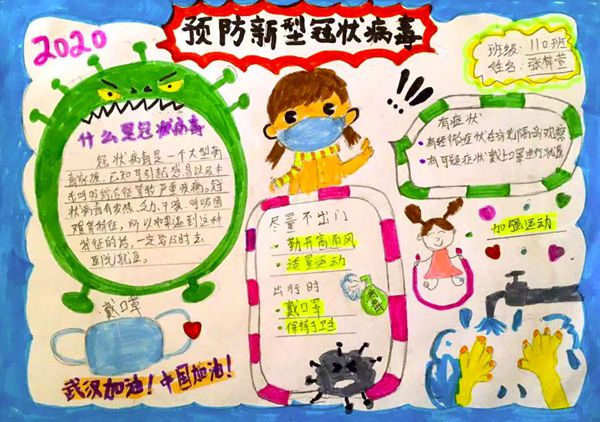 2020
预防新型冠状病毒
班级：110班
姓名：张萱
什么是冠状病毒
冠状病毒是一个大型病
毒家族，已知可引起感冒以及中
东呼吸综合征等较严重疾病。冠
状病毒有发热、乏力、干咳、呼吸困
难等特征，所以如果遇到这种
特征的话，一定要及时去
医院就医。
!!!
有症状
·有轻微症状在家先隔离观察
·有可疑症状戴上口罩进行就医
尽量不出门
·勤开窗通风
·适量运动
出行时
·戴口罩
·保持手卫生
加强运动
戴口罩
武汉加油！中国加油！